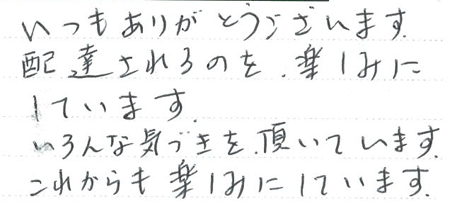 いつもありがとうございます.
配達されるのを、楽しみに
しています.
いろんな気づきを、頂いています.
これからも楽しみにしています.